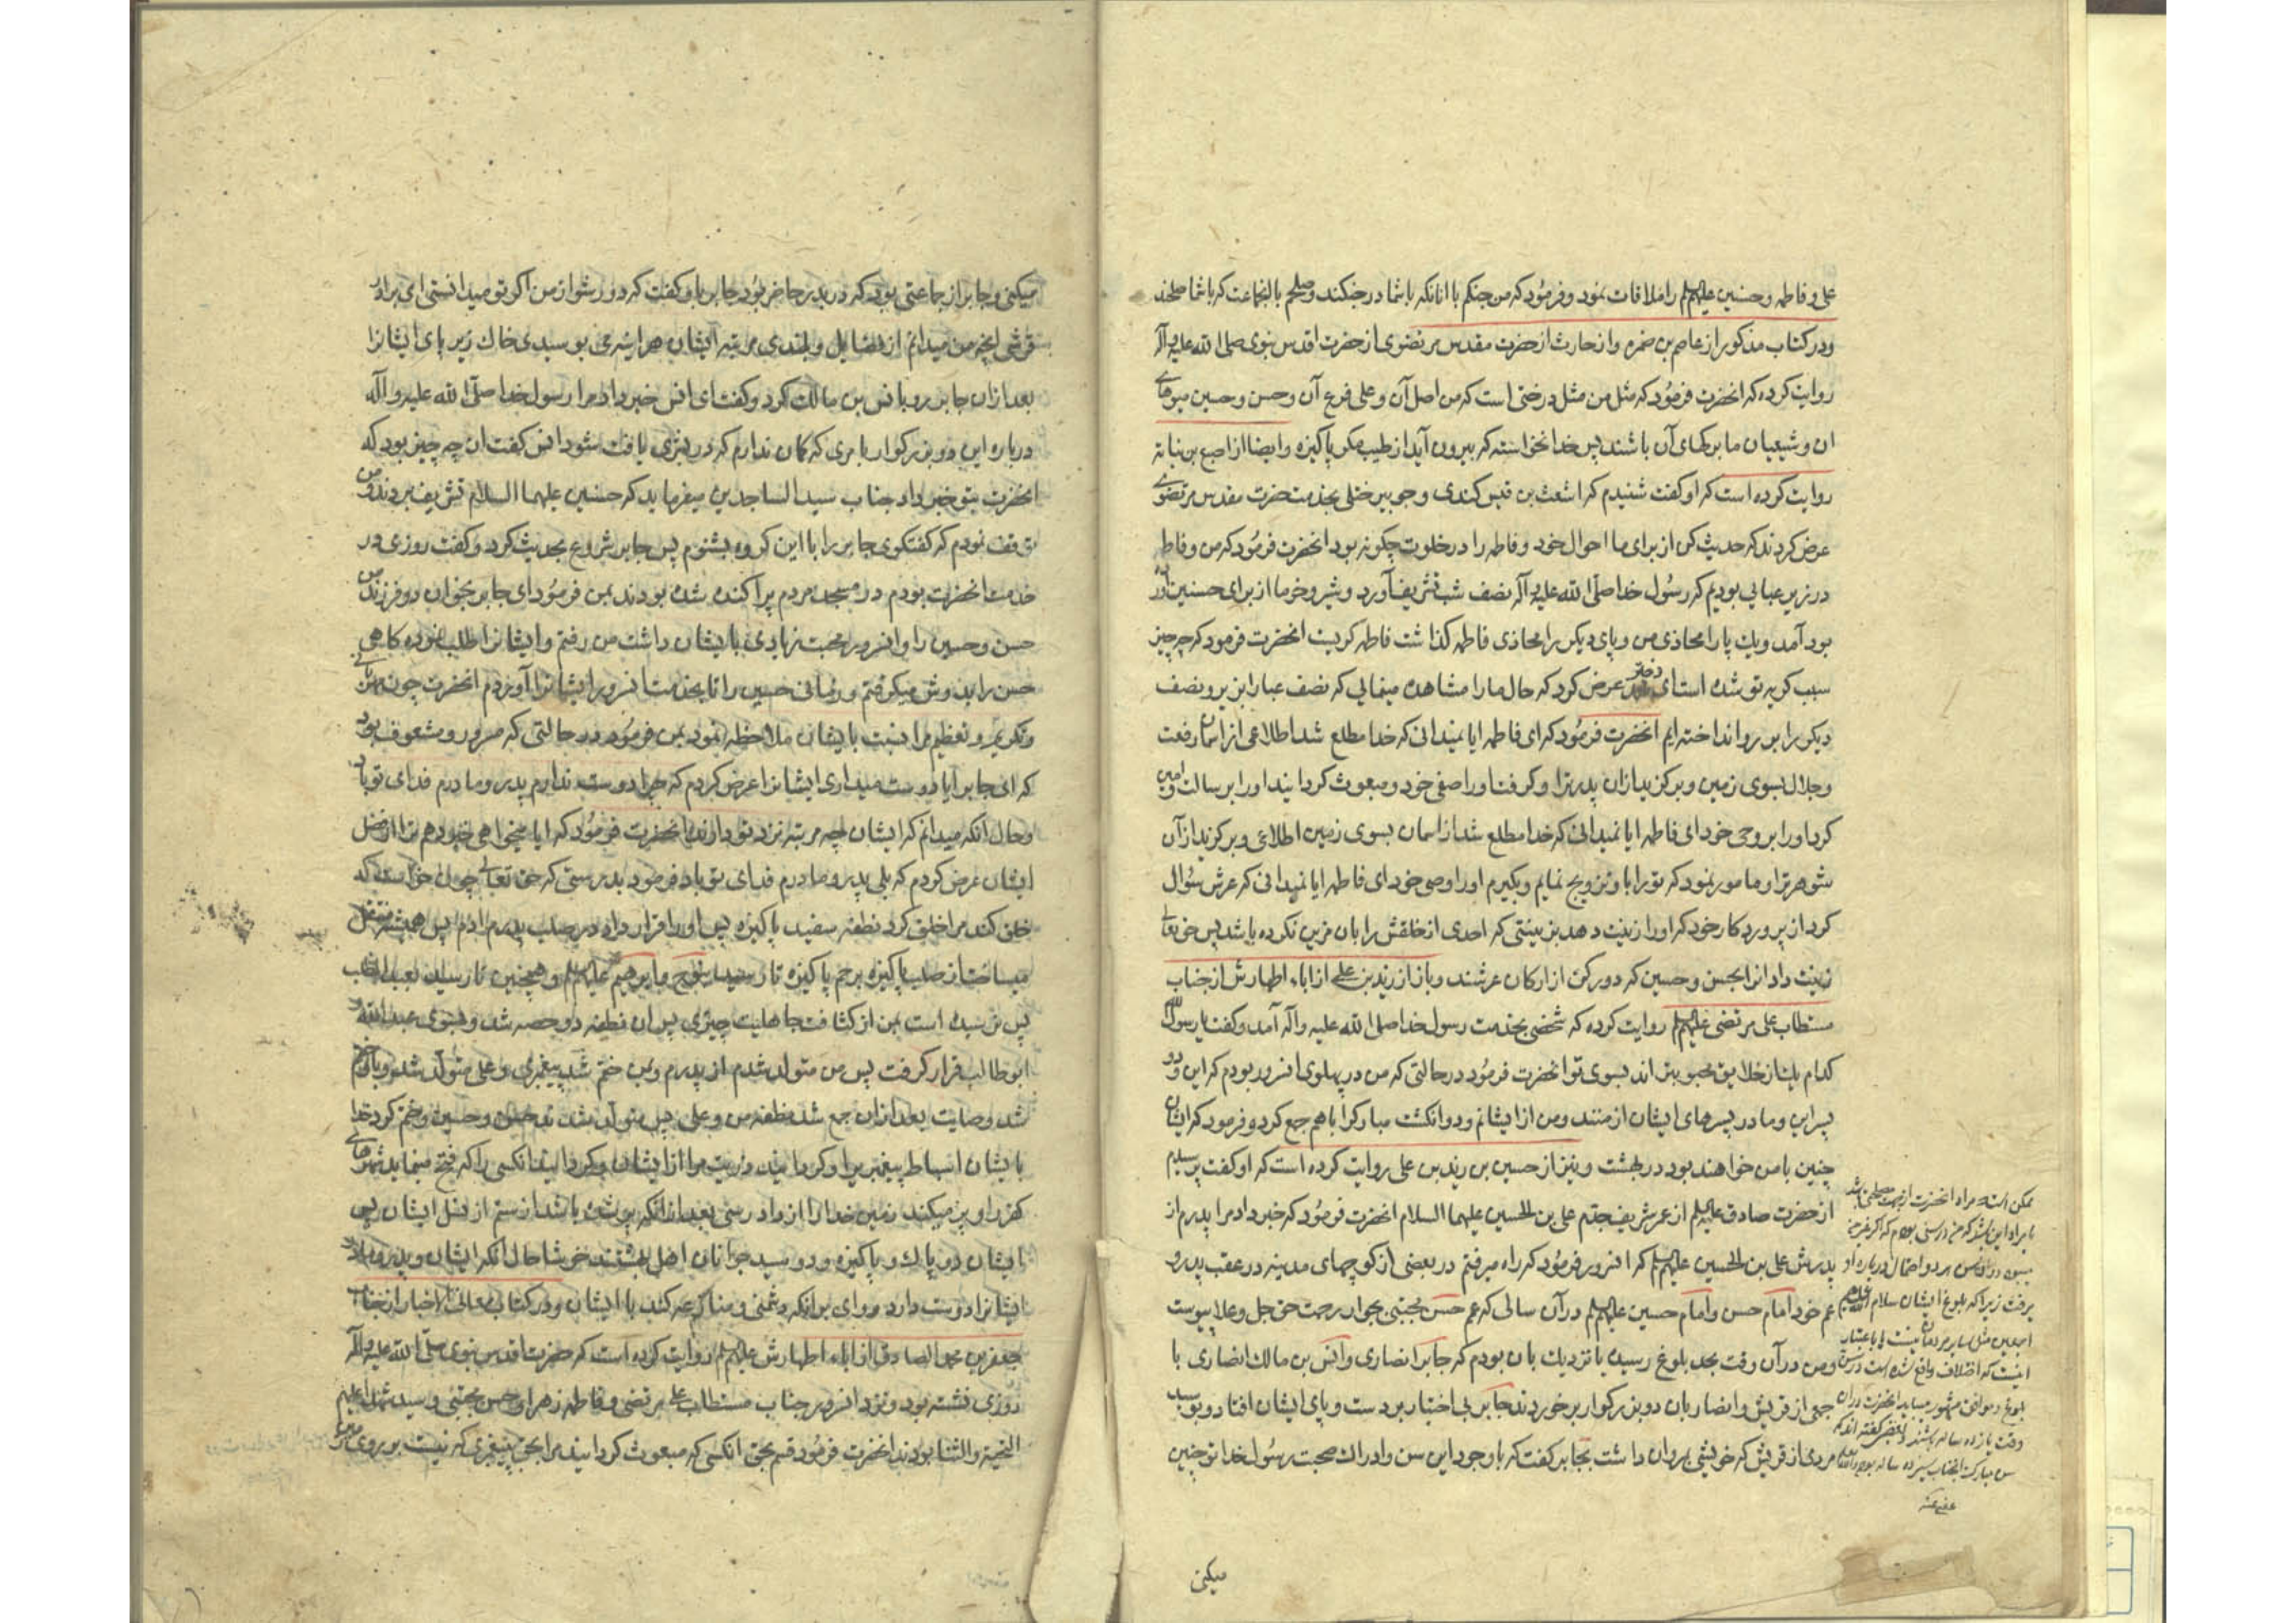 علی و فاطمه و حسنین علیهم السلم را ملاقات نمود و فرمود که من جنکم با انانکه با شما در جنکند و صلحم با انجماعت که با شما صلحند
و در کتاب مذکور از عاصم بن ضمره و از حارث از حضرت مقدس مرتضوی از حضرت اقدس نبوی صلی الله علیه و آله
روایت کرده که انحضرت فرمود که مثل من مثل درختی است که من اصل آن و علی فرع آن و حسن و حسین میوهای
ان و شیعیان ما برکهای آن باشند پس خدا نخواسته که بیرون آید از طیب مکر پاکیزه و ایضا از اصبع بن نباته
روایت کرده است که او کفت شنیدم که اشعث بن قیس کندی و جویبر ختلی بخدمت حضرت مقدس مرتضوی
عرض کردند که حدیث کن از برای ما احوال خود و فاطمه را در خلوت چکونه بود انحضرت فرمود که من و فاطمه
در زیر عبایی بودیم که رسول خدا صلی الله علیه و آله نصف شب تشریف آورد و شیر و خرما از برای حسنین آورده
بود آمد و یک پا را محاذی من و پای دیکر را محاذی فاطمه کذاشت فاطمه کریست انحضرت فرمود که چه چیز
سبب کریه تو شده است ای دختر محمد عرض کرد که حال ما را مشاهده مینمایی که نصف عبا را بزیر و نصف
دیکر را بر رو انداخته ایم انحضرت فرمود که ای فاطمه ایا نمیدانی که خدا مطلع شد اطلاعی از اسمان رفعت
و جلال بسوی زمین و برکزید ازان پدر ترا و کرفت او را صفی خود و مبعوث کردانید او را برسالت و امین
کرد او را بر وحی خود ای فاطمه ایا نمیدانی که خدا مطلع شد از اسمان بسوی زمین اطلاعی و برکزید از آن
شوهر ترا و مامور نمود که تو را با و تزویج نمایم و بکیرم او را وصی خود ای فاطمه ایا نمیدانی که عرش سؤال
کرد از پرورد کار خود که او را زینت دهد بزینتی که احدی از خلقش را بان مزین نکرده باشد پس حق تعالی
زینت داد انرا بحسن و حسین که دو رکن از ارکان عرشند و باز از زید بن علی از اباء اطهارش از جناب
مستطاب علی مرتضی علیهم السلم روایت کرده که شخصی بخدمت رسول خدا صلی الله علیه و اله آمد و کفت یا رسول الله
کدام یک از خلایق محبوبتر اند بسوی تو انحضرت فرمود در حالتی که من در پهلوی انسرور بودم که این و دو
پسر این و مادر پسرهای ایشان از منند و من از ایشانم و دو انکشت مبارک را باهم جمع کرد و فرمود که ایشان
چنین با من خواهند بود در بهشت و نیز از حسین بن زید بن علی روایت کرده است که او کفت پرسیدم
از حضرت صادق علیه السلم از عمر شریف جدم علی بن الحسین علیهما السلام انحضرت فرمود که خبر داد مرا پدرم از
پدرش علی بن الحسین علیهم السلم که انسرور فرمود که راه میرفتم در بعضی از کوچهای مدینه در عقب پدر و
عم خود امام حسن و امام حسین علیهم السلم در آن سالی که عم حسن مجتبی بجوار رحمت حق جل و علا پیوست
و من در آن وقت بحد بلوغ رسیده یا نزدیک بان بودم که جابر انصاری و انس بن مالک انصاری با
جمعی از قریش و انصار بان دو بزرکوار برخوردند جابر بی اختیار بر دست و پای ایشان افتاد و بوسید
مردی از قریش که خویشی بمروان داشت بجابر کفت که با وجود این سن و ادراک صحبت رسول خدا تو چنین
میکنی
عفی عنه
میکنی و جابر از جماعتی بود که در بدر حاضر بود جابر باو کفت که دور شو از من اکر تو میدانستی ای برادر
قرشی انچه من میدانم از فضایل و بلندی مرتبه ایشان هراینه می بوسیدی خاک زیر پای ایشانرا
بعد ازان جابر رو بانس بن مالک کرد و کفت ای انس خبر داد مرا رسول خدا صلی الله علیه و آله
درباره این دو بزرکوار بامری که کمان ندارم که در بشری یافت شود انس کفت ان چه چیز بود که
انحضرت بتو خبر داد جناب سید الساجدین میفرماید که حسنین علیهما السلام تشریف بردند و من
توقف نمودم که کفتکوی جابر را با این کروه بشنوم پس جابر شروع بحدیث کرد و کفت روزی در
خدمت انحضرت بودم در مسجد مردم پراکنده شده بودند بمن فرمود ای جابر بخوان دو فرزند من
حسن و حسین را و انسرور محبت زیادی با ایشان داشت من رفتم و ایشانرا طلب نموده کاهی
حسن را بدوش میکرفتم و زمانی حسین را تا بخدمت انسرور ایشانرا آوردم انحضرت چون مهربانی
و تکریم و تعظیم مرا نسبت بایشان ملاحظه نمود بمن فرمود در حالتی که مسرور و مشعوف بود
که ای جابر ایا دوست میداری ایشانرا عرض کردم که چرا دوست ندارم پدر و مادرم فدای تو باد
و حال آنکه میدانم که ایشان چه مرتبه نزد تو دارند انحضرت فرمود که ایا میخواهی خبر دهم ترا از فضل
ایشان عرض کردم که بلی پدر و مادرم فدای تو باد فرمود بدرستی که حق تعالی چون خواست که
خلق کند مرا خلق کرد نطفه سفید پاکیزه پس او را قرار داد در صلب پدرم ادم پس همیشه منتقل
میساخت از صلب پاکیزه برحم پاکیزه تا رسید بنوح و ابرهیم علیهم السلم و همچنین تا رسید بعبد المطلب
پس نرسیده است بمن از کثافت جاهلیت چیزی پس ان نطفه دو حصه شد و بسوی عبد الله و
ابو طالب قرار کرفت پس من متولد شدم از پدرم و بمن ختم شد پیغمبری و علی متولد شد و باو ختم
شد وصایت بعد ازان جمع شد نطفه من و علی پس متولد شد حسن و حسین و ختم کرد خدا
بایشان اسباط پیغمبریرا و کردانید ذریت مرا از ایشان و کردانید انکسی را که فتح مینماید شهرهای
کفر را و پر میکند زمین خدا را از داد رسی بعد از انکه پر شده باشد از ستم از نسل ایشان پس
ایشان دو پاک و پاکیزه و دو سید جوانان اهل بهشتند خوشا حال انکه ایشان و پدر و مادر
ایشانرا دوست دارد و وای بر انکه دشمنی و منازعه کند با ایشان و در کتاب معانی الاخبار از جناب
جعفر بن محمد الصادق از اباء اطهارش علیهم السلم روایت کرده است که حضرت اقدس نبوی صلی الله علیه و آله
روزی نشسته بود و نزد انسرور جناب مستطاب علی مرتضی و فاطمه زهرا و حسن مجتبی و سید شهدا علیهم
التحیة والثنا بودند انحضرت فرمود قسم بحق انکسی که مبعوث کردانید مرا بحق پیغمبری که نیست بر روی